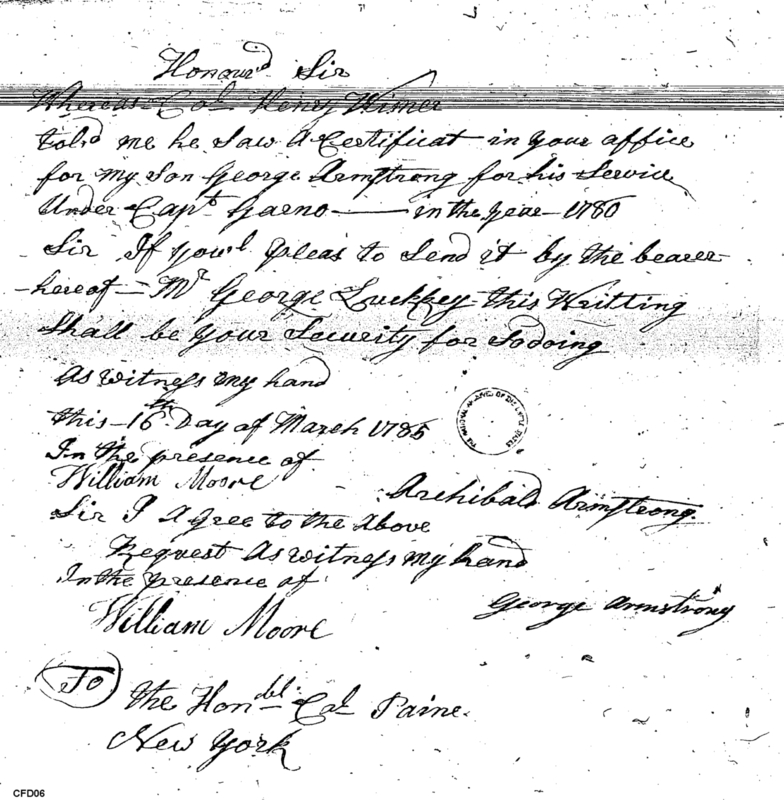 Honour'd Sir
Whereas Col. Henry Wisner
told me he Saw A Certificat in your office
for my Son George Armstrong for his Service
Under Capt. Garno — in the year - 1780
Sir If you'l pleas to Send it by the bearer
hereof - Mr George Luckkey this Writting
Shall be your Security for Sodoing
As witness my hand
this - 16th Day of March 1785
In the presence of
William Moore
Archibald Armstrong
Sir I Agree to the Above
Request As witness my hand
In the presence of
George Armstrong
William Moore
To
the Hondbl. Col. Paine.
New York
CFD06